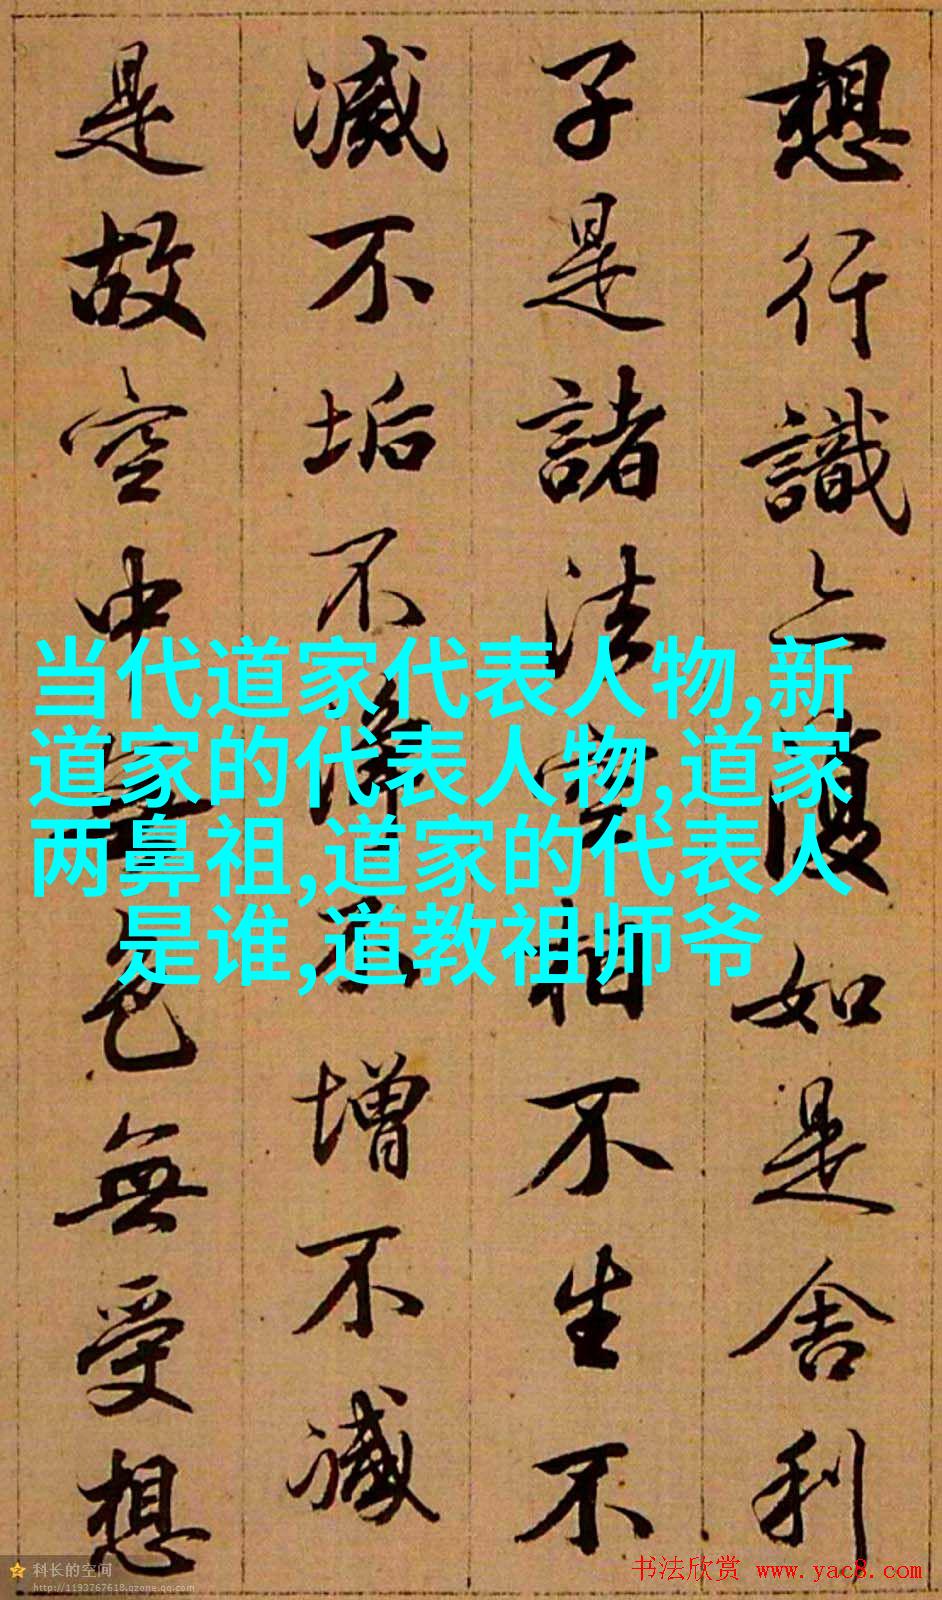 想行識亦復如是舍利
子是諸法空相不生不
滅不垢不淨不增不減
是故空中無色無受想
当代道家代表人物,新
道家的代表人物,道家
两鼻祖,道家的代表人
是谁,道教祖师爷
科长的空间
http://1193767618.qzone.qq.com
书法欣赏 www.yac8.com